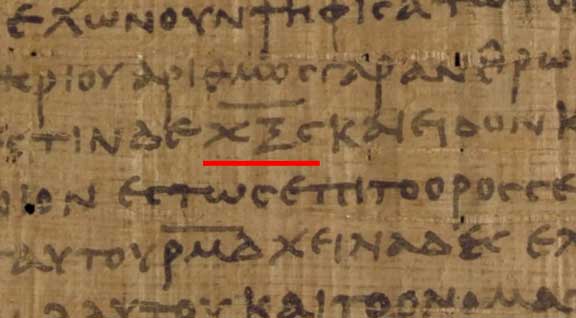 ΕΧΩΝΟΥΝΨΗΦΙCΑΤΩΤΟ
ΗΡΙΟΥΑΡΙΘΜΟCΓΑΡΑΝΘΡΩ
CΤΙΝΔΕΧ̅Ξ̅Ϛ̅ΚΑΙΕΙΔΟΝΚ
ΙΟΝ ΕCΤΩCΕΠΙΤΟΟΡΟCCΕ
ΤΑΥΤΟΥΡ̅Μ̅Δ̅ΧΕΙΛΙΑΔΕCΕΧ
ΑΥΤΟΥΚΑΙΤΟΟΝΟΜΑ